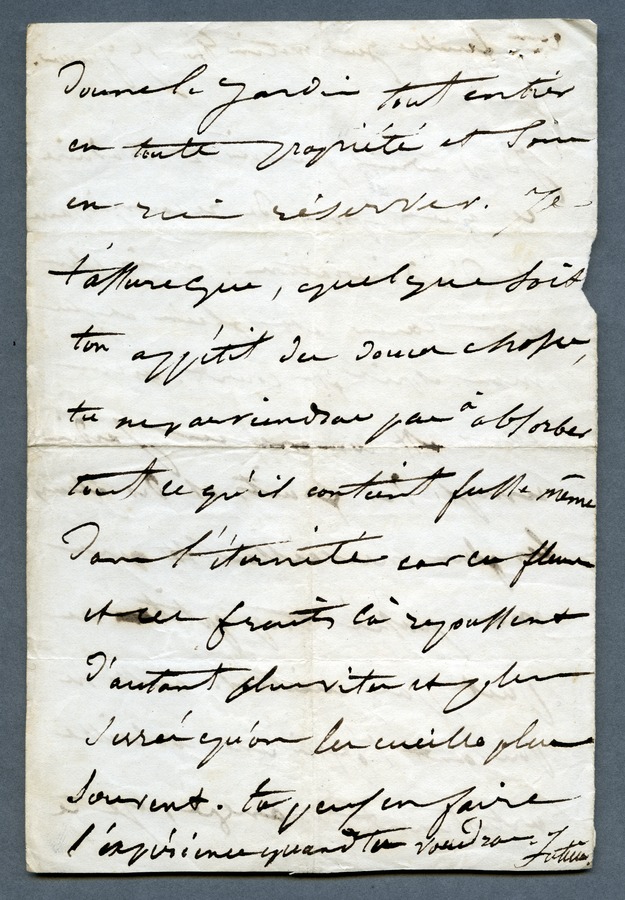 donne le jardin tout entier
en toute propriété et sans
en rien réserver. Je
t'assure que, quelque soit
ton appétit des douces choses,
tu ne parviendras pas à absorber
tout ce qu'il contient fusse même
dans l'éternité car ces fleurs
et ces fruits là repoussent
d'autant plus vite et plus
serrés qu'on les cueille plus
souvent. tu peux en faire
l'expérience quand tu voudras.